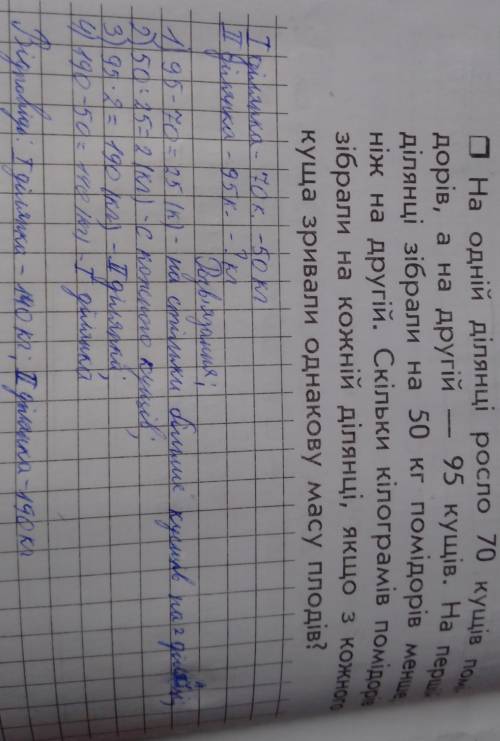 На одній ділянці росло 70 кущів пом
дорів, а на другій — 95 кущів. На перші
ділянці зібрали на 50 кг помідорів менше,
ніж на другій. Скільки кілограмів помідорі
зібрали на кожній ділянці, якщо з кожного
куща зривали однакову масу плодів?
I ділянка - 70 к. -50 кг
II ділянка - 95 к. - ? кг
Розв'язання:
1) 95-70=25 (к) - на стільки більше кущів на 2 ділянці;
2) 50:25=2 (кг) - с кожного кущів;
3) 95·2=190 (кг) - II ділянка;
4) 190-50=140 (кг) - I ділянка
Відповіді: I ділянка - 140 кг; II ділянка - 190 кг